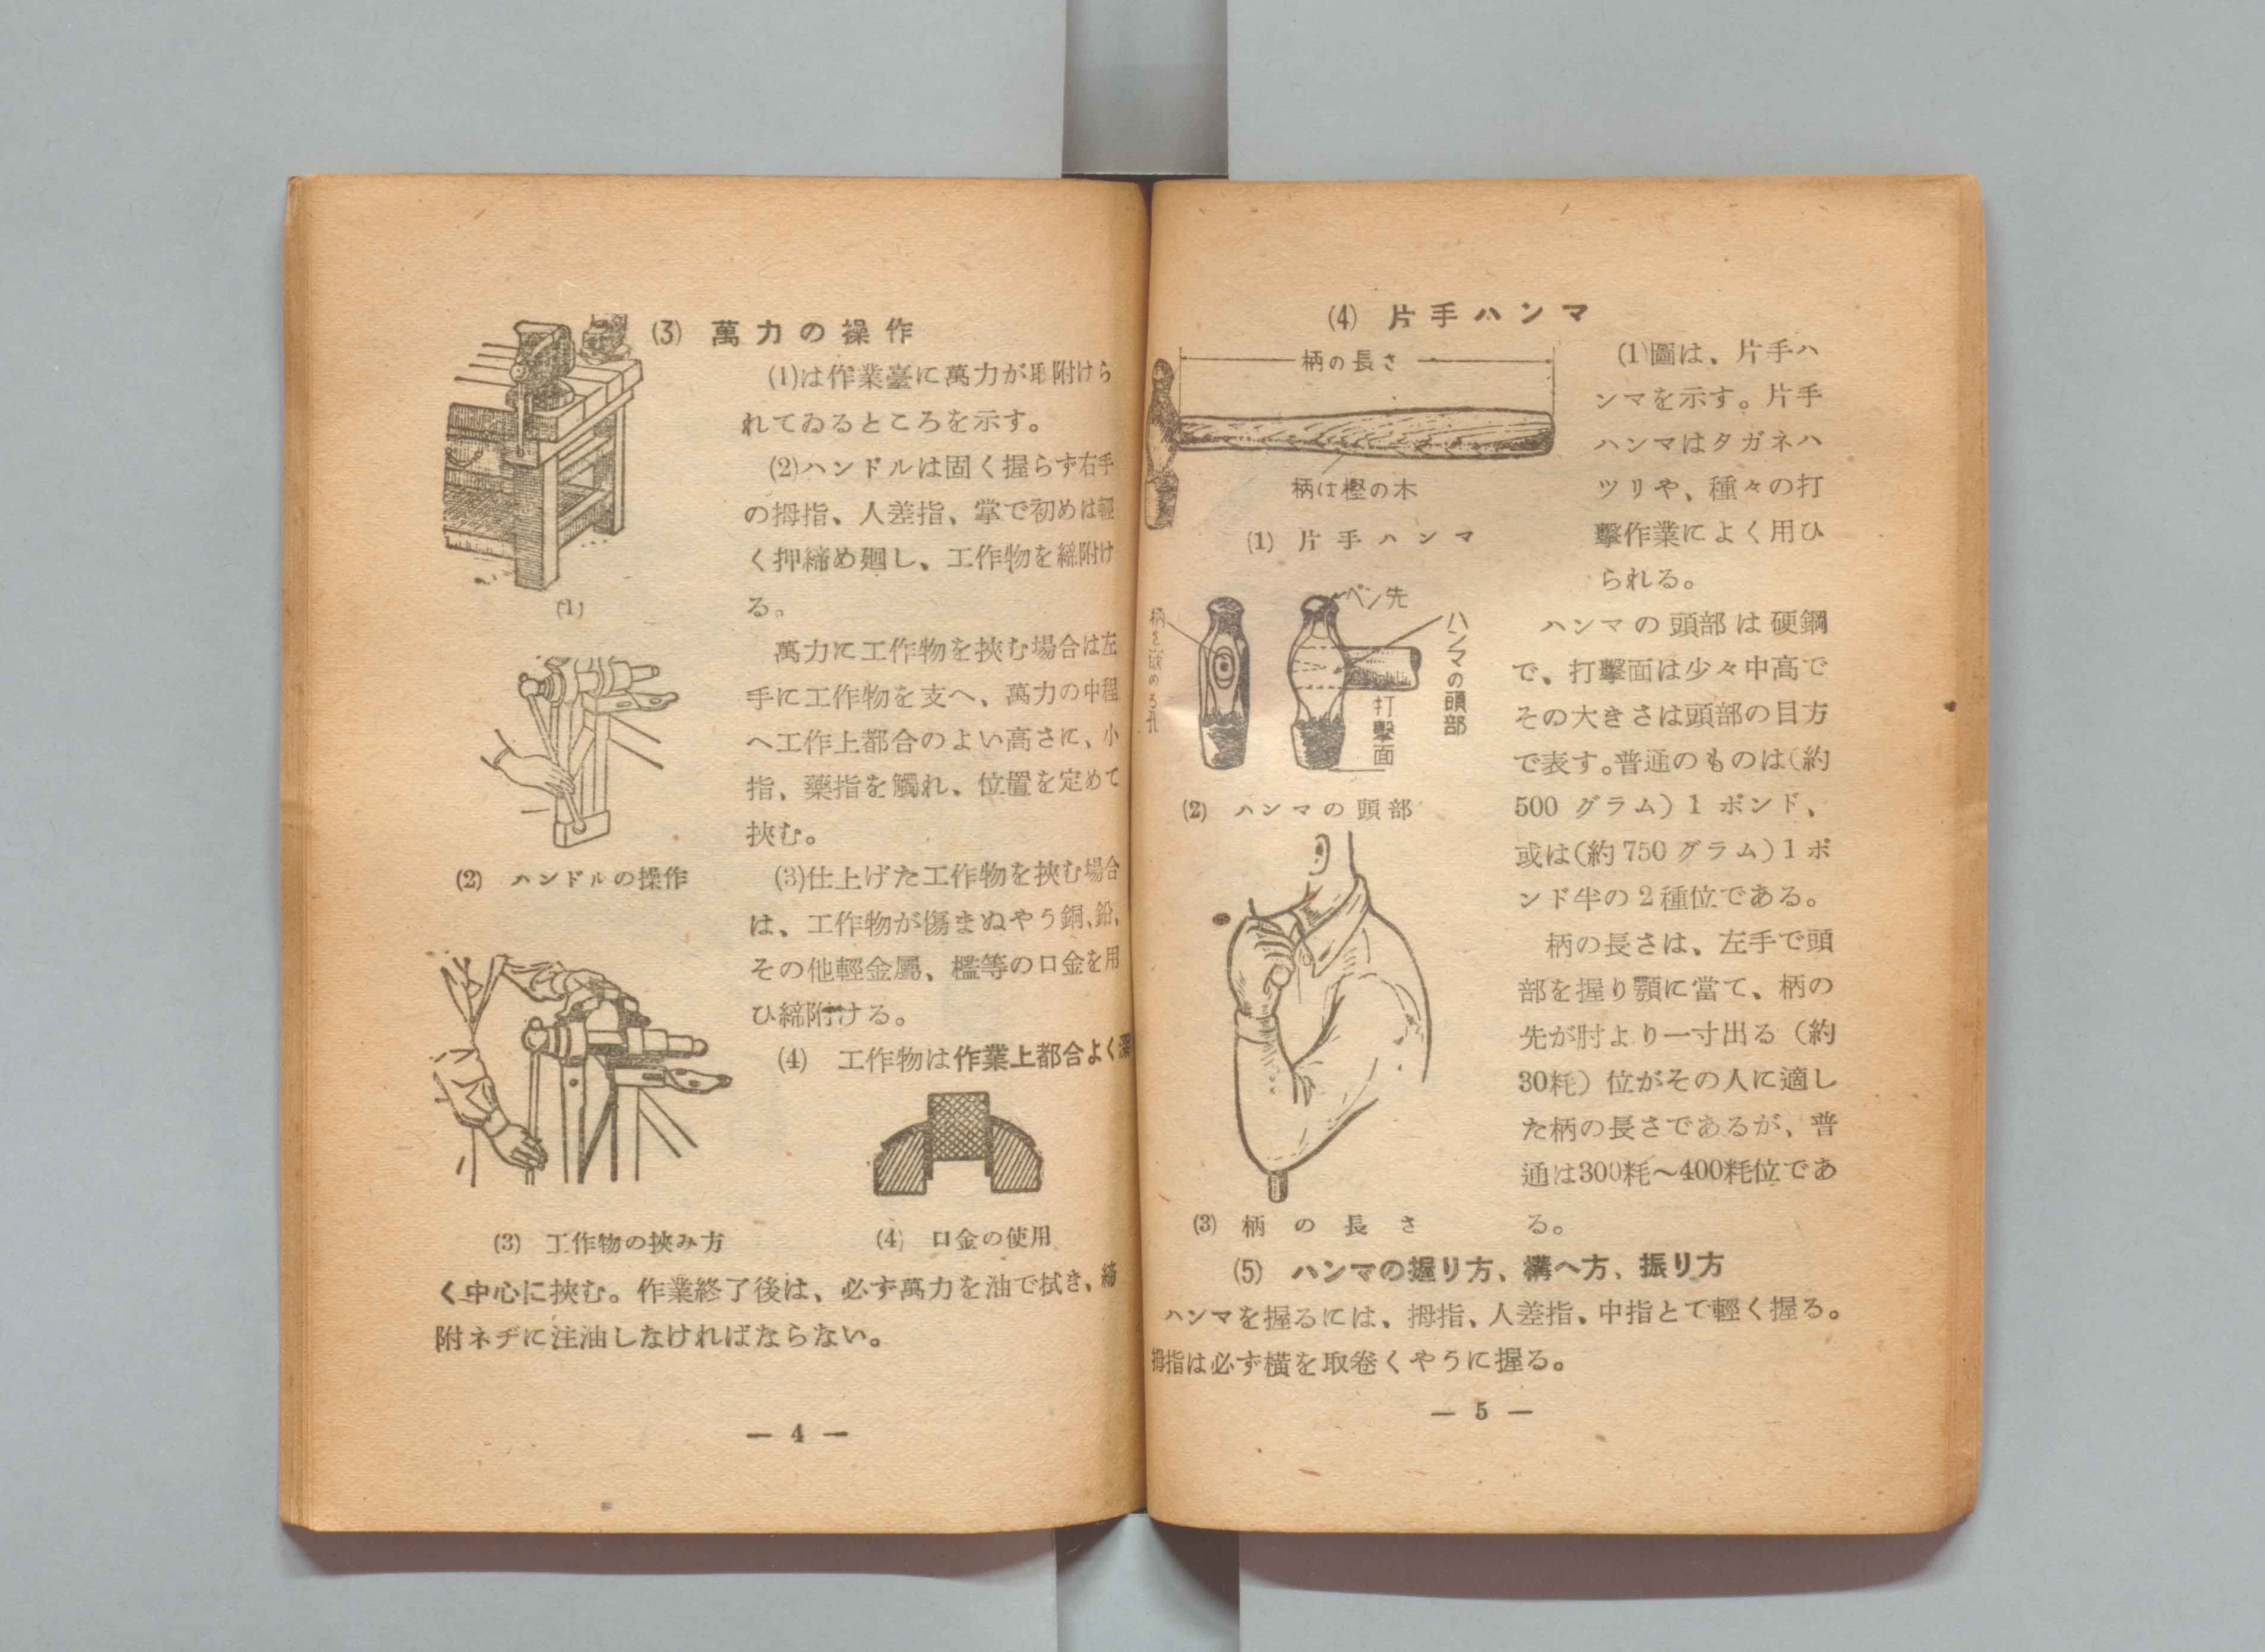 (3) 萬力の操作
(1)は作業臺に萬力が取附けら
れてゐるところを示す。
(2)ハンドルは固く握らず右手
の拇指、人差指、掌で初めは輕
く押締め廻し、工作物を締附け
る。
萬力に工作物を挾む場合は左
手に工作物を支へ、萬力の中程
へ工作上都合のよい高さに、小
指、藥指を觸れ、位置を定めて
挾む。
(3)仕上げた工作物を挾む場合
は、工作物が傷まぬやう銅、鉛、
その他輕金屬、檻等の口金を用
ひ締附ける。
(4) 工作物は作業上都合よく深
(1)
(2) ハンドルの操作
(3) 工作物の挾み方
(4) 口金の使用
く中心に挾む。作業終了後は、必ず萬力を油で拭き、締
附ネヂに注油しなければならない。
— 4 —
(4) 片手ハンマ
柄の長さ
柄は樫の木
(1) 片手ハンマ
(1)圖は、片手ハ
ンマを示す。片手
ハンマはタガネハ
ツリや、種々の打
擊作業によく用ひ
られる。
ペン先
ハンマの頭部
打擊面
(2) ハンマの頭部
ハンマの頭部は硬鋼
で、打擊面は少々中高で
その大きさは頭部の目方
で表す。普通のものは(約
500 グラム) 1 ポンド、
或は(約 750 グラム) 1 ポ
ンド半の 2 種位である。
柄の長さは、左手で頭
部を握り顎に當て、柄の
先が肘より一寸出る (約
30粍) 位がその人に適し
た柄の長さであるが、普
通は300粍～400粍位であ
る。
(3) 柄の長さ
(5) ハンマの握り方、構へ方、振り方
ハンマを握るには、拇指、人差指、中指とで輕く握る。
拇指は必ず橫を取卷くやうに握る。
— 5 —